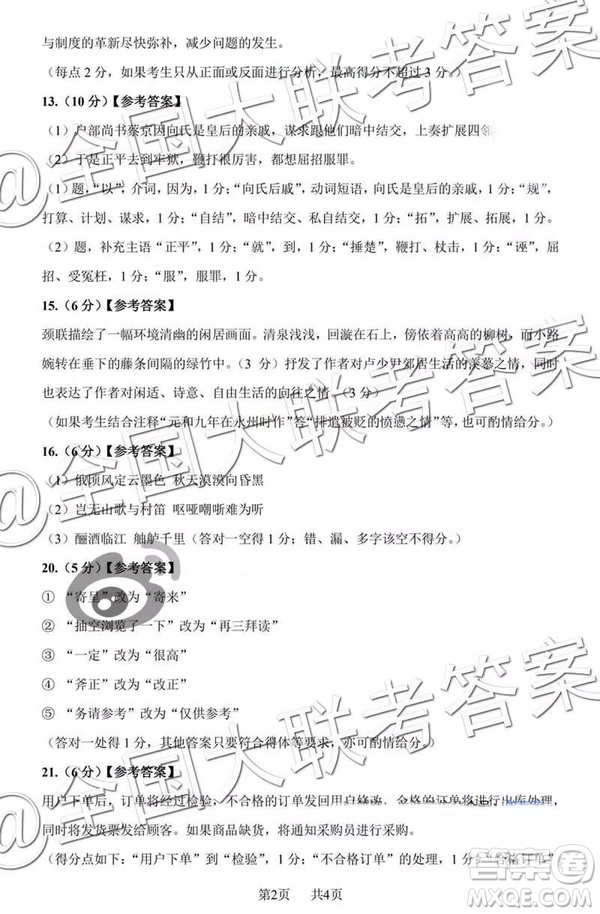 与制度的革新尽快弥补，减少问题的发生。
（每点 2 分，如果考生只从正面或反面进行分析，最高得分不超过 3 分。）
13.（10 分）【参考答案】
（1）户部尚书蔡京因向氏是皇后的亲戚，谋求跟他们暗中结交，上奏扩展四邻
（2）于是正平去到牢狱，鞭打很厉害，都想屈招服罪。
（1）题，“以”，介词，因为，1 分；“向氏后戚”，动词短语，向氏是皇后的亲戚，1 分；“规”，
打算、计划、谋求，1 分；“自结”，暗中结交、私自结交，1 分；“拓”，扩展、拓展，1 分。
（2）题，补充主语“正平”，1 分；“就”，到，1 分；“捶楚”，鞭打、杖击，1 分；“诬”，屈
招、受冤枉，1 分；“服”，服罪，1 分。
15.（6 分）【参考答案】
颈联描绘了一幅环境清幽的闲居画面。清泉浅浅，回漩在石上，傍依着高高的柳树，而小路
婉转在垂下的藤条间隔的绿竹中。（3 分）抒发了作者对卢少尹郊居生活的羡慕之情，同时
也表达了作者对闲适、诗意、自由生活的向往之情。（3 分）
（如果考生结合注释“元和九年在永州时作”答“排遣被贬的愤懑之情”等，也可酌情给分。）
16.（6 分）【参考答案】
（1）俄顷风定云墨色 秋天漠漠向昏黑
（2）岂无山歌与村笛 呕哑嘲哳难为听
（3）酾酒临江 舳舻千里（答对一空得 1 分；错、漏、多字该空不得分。）
20.（5 分）【参考答案】
① “寄呈”改为“寄来”
② “抽空浏览了一下”改为“再三拜读”
③ “一定”改为“很高”
④ “斧正”改为“改正”
⑤ “务请参考”改为“仅供参考”
（答对一处得 1 分，其他答案只要符合得体等要求，可酌情给分。）
21.（6 分）【参考答案】
用户下单后，订单将经过检验，不合格的订单发回用户修改，合格的订单将进行出库处理，
同时将发货票发给顾客。如果商品缺货，将通知采购员进行采购。
（得分点如下：“用户下单”到“检验”，1 分；“不合格订单”的处理，1 分；“合格订单”
第2页 共4页
@全国大联考答案
@全国大联考答案
@全国大联考答案
答案圈
MXQE.COM